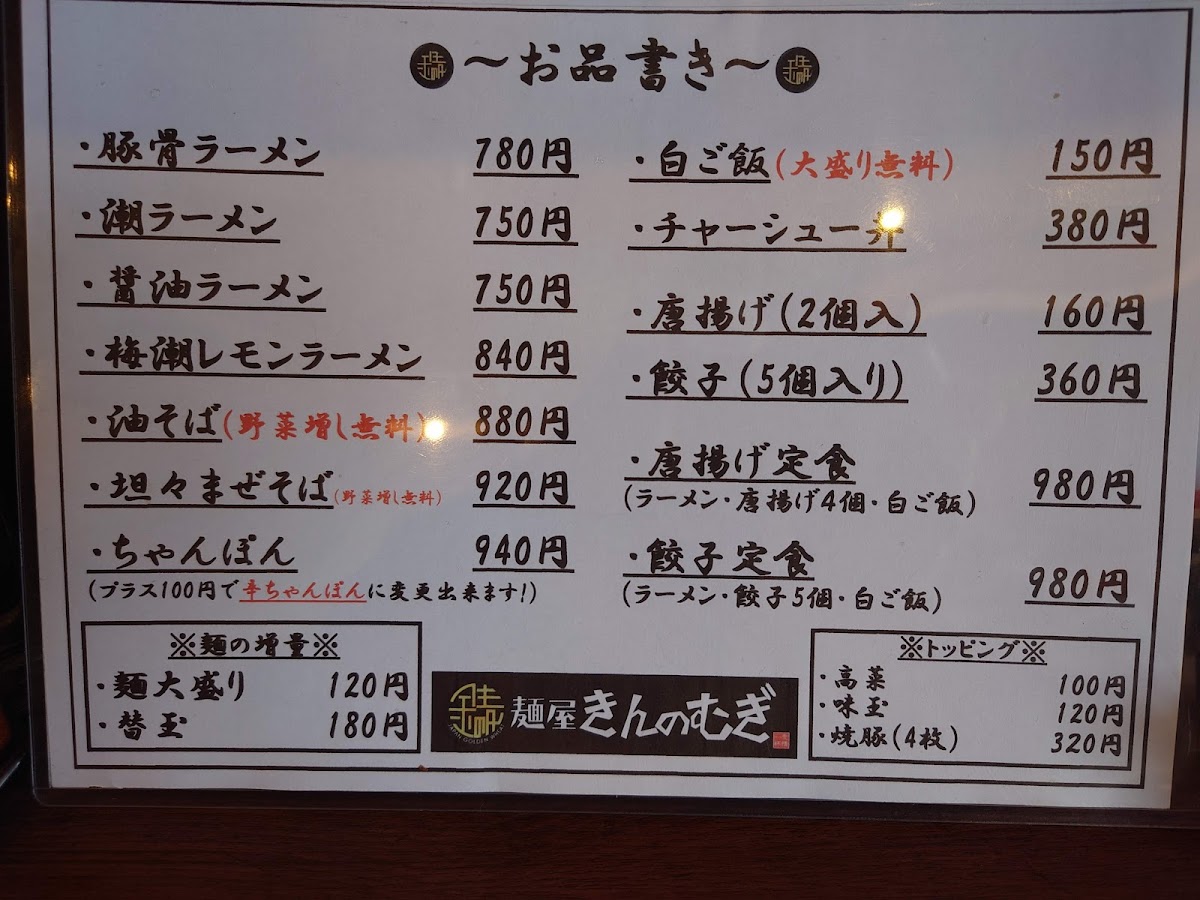 ～お品書き～
・豚骨ラーメン 780円
・潮ラーメン 750円
・醤油ラーメン 750円
・梅潮レモンラーメン 840円
・油そば(野菜増し無料) 880円
・坦々まぜそば(野菜増し無料) 920円
・ちゃんぽん 940円
(プラス100円で辛ちゃんぽんに変更出来ます!)
※麺の増量※
・麺大盛り 120円
・替玉 180円
・白ご飯(大盛り無料) 150円
・チャーシュー丼 380円
・唐揚げ(2個入) 160円
・餃子(5個入り) 360円
・唐揚げ定食 980円
(ラーメン・唐揚げ4個・白ご飯)
・餃子定食 980円
(ラーメン・餃子5個・白ご飯)
※トッピング※
・高菜 100円
・味玉 120円
・焼豚(4枚) 320円
麺屋 きんのむぎ